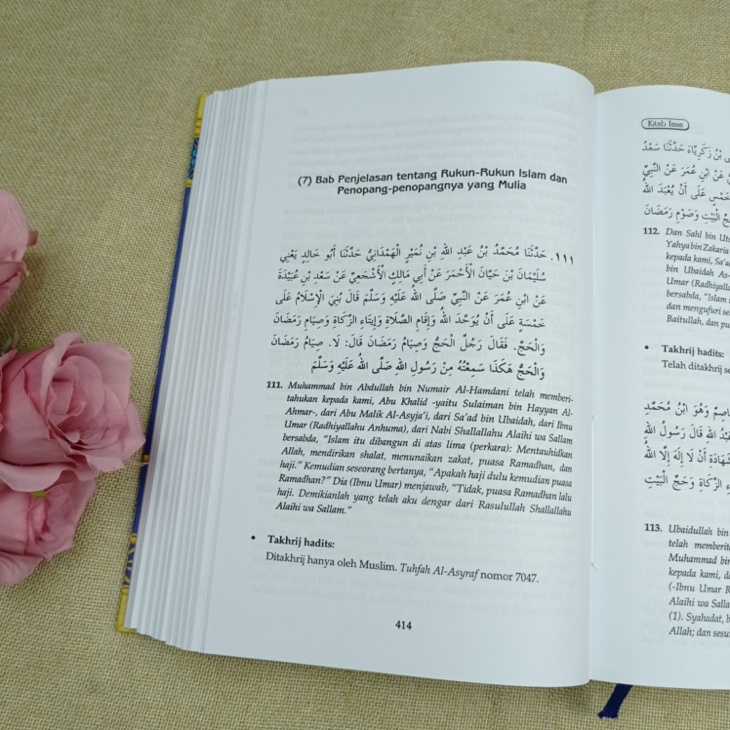 (7) Bab Penjelasan tentang Rukun-Rukun Islam dan
Penopang-penopangnya yang Mulia
١١١. حَدَّثَنَا مُحَمَّدُ بْنُ عَبْدِ اللهِ بْنِ نُمَيْرٍ الْهَمْدَانِيُّ حَدَّثَنَا أَبُو خَالِدٍ يَعْنِي
سُلَيْمَانَ بْنَ حَيَّانَ الْأَحْمَرَ عَنْ أَبِي مَالِكٍ الْأَشْجَعِيِّ عَنْ سَعْدِ بْنِ عُبَيْدَةَ
عَنِ ابْنِ عُمَرَ عَنْ النَّبِيِّ صَلَّى اللهُ عَلَيْهِ وَسَلَّمَ قَالَ بُنِيَ الْإِسْلَامُ عَلَى
خَمْسَةٍ عَلَى أَنْ يُوَحَّدَ اللهُ وَإِقَامِ الصَّلَاةِ وَإِيتَاءِ الزَّكَاةِ وَصِيَامِ رَمَضَانَ
وَالْحَجِّ. فَقَالَ رَجُلٌ الْحَجُّ وَصِيَامُ رَمَضَانَ قَالَ: لَا. صِيَامُ رَمَضَانَ
وَالْحَجُّ هَكَذَا سَمِعْتُهُ مِنْ رَسُولِ اللهِ صَلَّى اللهُ عَلَيْهِ وَسَلَّمَ
111. Muhammad bin Abdullah bin Numair Al-Hamdani telah memberi-
tahukan kepada kami, Abu Khalid -yaitu Sulaiman bin Hayyan Al-
Ahmar-, dari Abu Malik Al-Asyja'i, dari Sa'ad bin Ubaidah, dari Ibnu
Umar (Radhiyallahu Anhuma), dari Nabi Shallallahu Alaihi wa Sallam
bersabda, "Islam itu dibangun di atas lima (perkara): Mentauhidkan
Allah, mendirikan shalat, menunaikan zakat, puasa Ramadhan, dan
haji." Kemudian seseorang bertanya, "Apakah haji dulu kemudian puasa
Ramadhan?" Dia (Ibnu Umar) menjawab, "Tidak, puasa Ramadhan lalu
haji. Demikianlah yang telah aku dengar dari Rasulullah Shallallahu
Alaihi wa Sallam."
• Takhrij hadits:
Ditakhrij hanya oleh Muslim. Tuhfah Al-Asyraf nomor 7047.
414
Kitab Iman
بْنُ زَكَرِيَّاءَ حَدَّثَنَا سَعْدُ
عَنِ ابْنِ عُمَرَ عَنْ النَّبِيِّ
خَمْسٍ عَلَى أَنْ يُعْبَدَ اللهُ
الْبَيْتِ وَصَوْمِ رَمَضَانَ
112. Dan Sahl bin
Yahya bin Zakaria
kepada kami, Sa'ad
bin Ubaidah
Umar (Radhiyall
bersabda, "Islam
dan mengufuri se
Baitullah, dan pu
• Takhrij hadits:
Telah ditakhrij
عَاصِمٌ وَهُوَ ابْنُ مُحَمَّدِ
عَبْدُ اللهِ قَالَ رَسُولُ اللهِ
شَهَادَةِ أَنْ لَا إِلَهَ إِلَّا اللهُ
الزَّكَاةِ وَحَجِّ الْبَيْتِ
113. Ubaidullah bin
telah memberit
Muhammad bin
kepada kami,
(-Ibnu Umar
Alaihi wa Salla
(1). Syahadat,
Allah; dan sesu